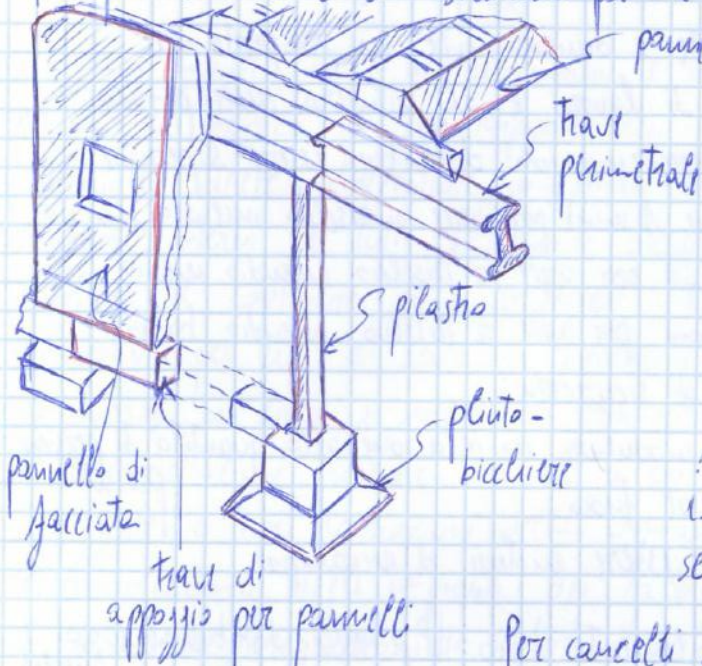 trave
perimetrale
pilastro
plinto-
bicchiere
pannello di
facciata
trave di
appoggio per pannelli
Per cancelli